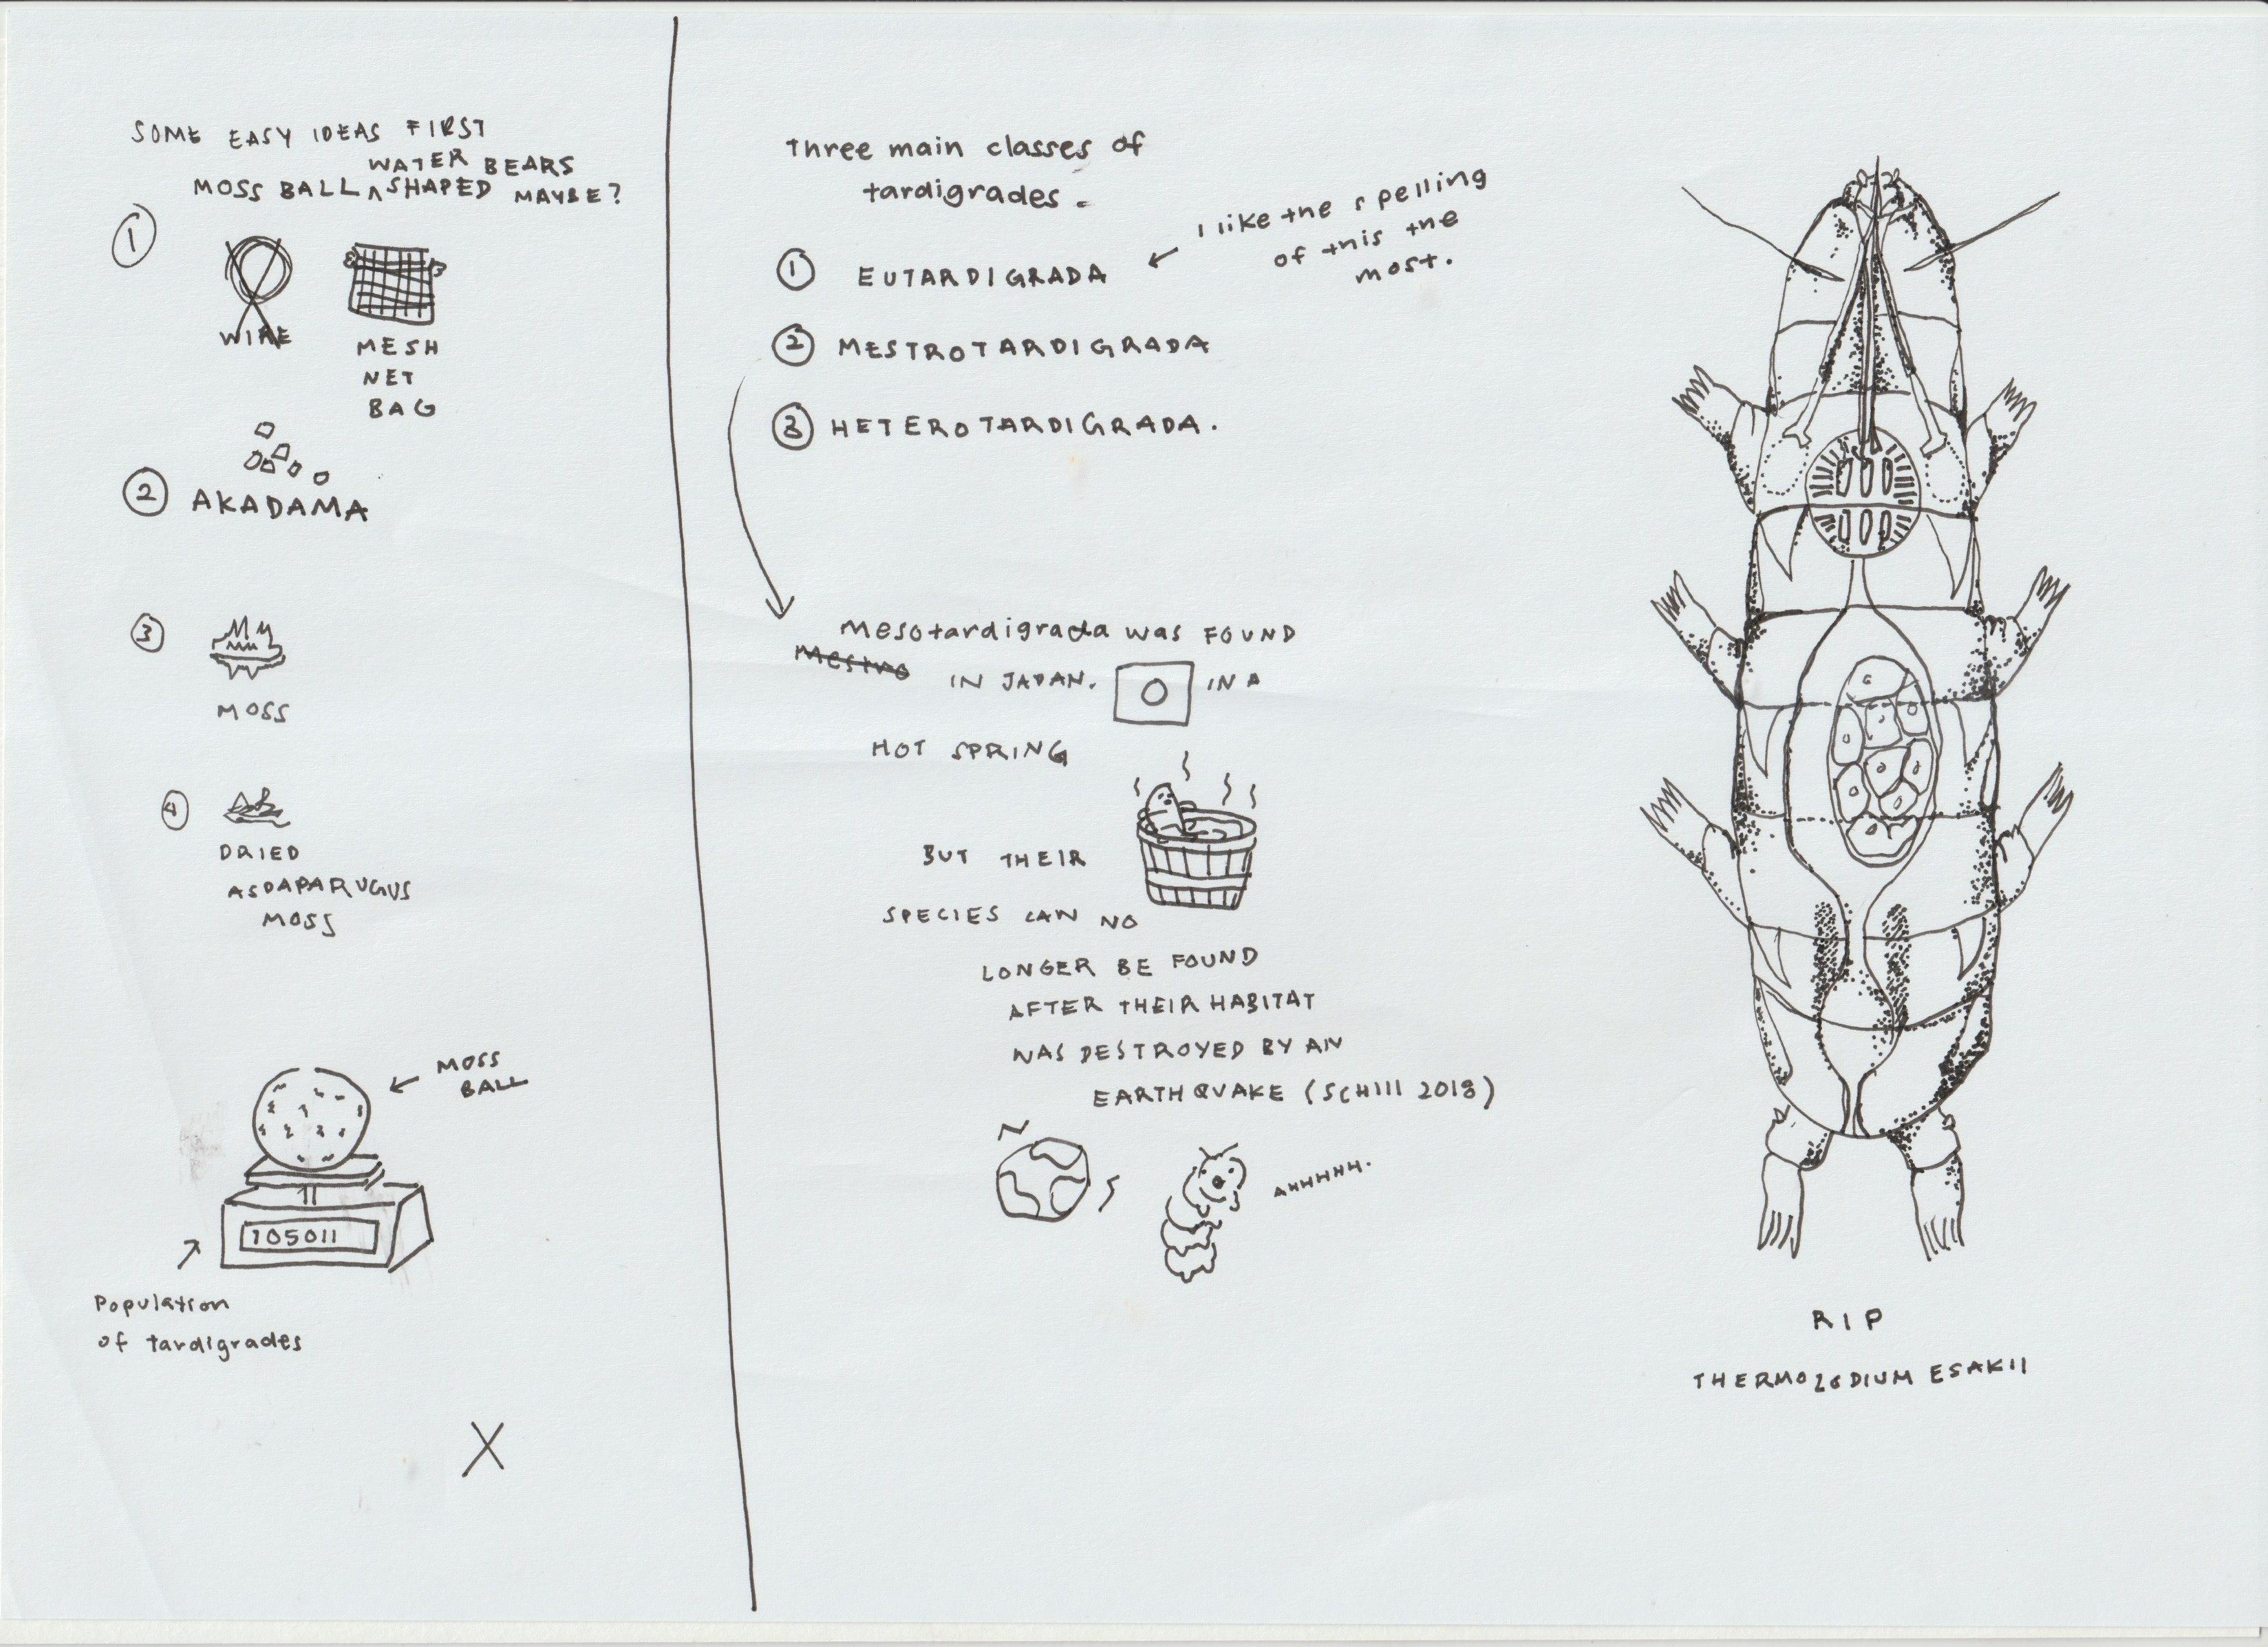 SOME EASY IDEAS FIRST
WATER BEARS
MOSS BALL ^ SHAPED MAYBE?
1
WIRE
MESH
NET
BAG
2 AKADAMA
3
MOSS
4
DRIED
ASDAPARUGUS
MOSS
MOSS
BALL
105011
Population
of tardigrades
X
Three main classes of
tardigrades.
1 EUTARDIGRADA
I like the spelling
of this the
most.
2 MESTROTARDIGRADA
3 HETEROTARDIGRADA.
Mesotardigrada was FOUND
Mestro
IN JAPAN. IN A
HOT SPRING
BUT THEIR
SPECIES CAN NO
LONGER BE FOUND
AFTER THEIR HABITAT
WAS DESTROYED BY AN
EARTHQUAKE (SCHIll 2018)
AHHHHH.
RIP
THERMOZODIUM ESAKII